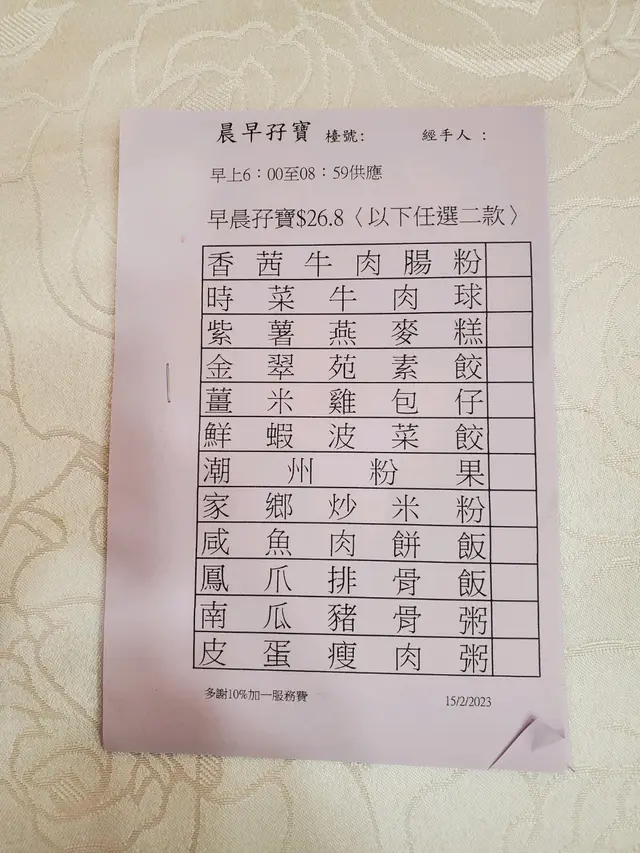 晨早孖寶 檯號: 經手人:
早上6:00至08:59供應
早晨孖寶$26.8〈以下任選二款〉
香茜牛肉腸粉
時菜牛肉球
紫薯燕麥糕
金翠苑素餃
薑米雞包仔
鮮蝦波菜餃
潮州粉果
家鄉炒米粉
咸魚肉餅飯
鳳爪排骨飯
南瓜豬骨粥
皮蛋瘦肉粥
多謝10%加一服務費 15/2/2023